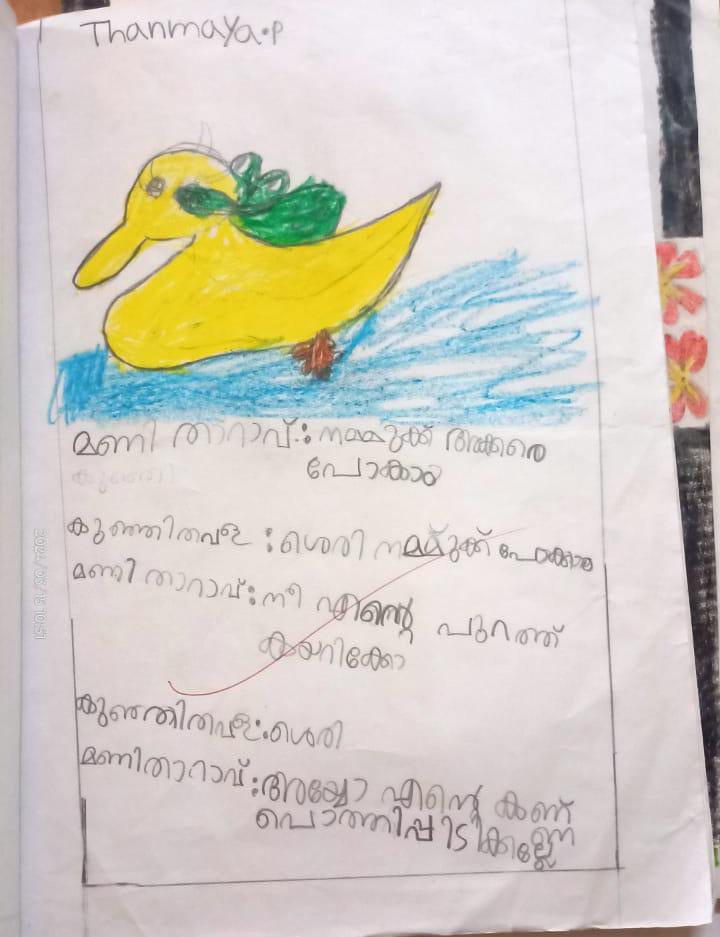 Thanmaya.P
മണി താറാവ്: നമ്മുക്ക് അക്കരെ
പോകാം
കുഞ്ഞിതവള : ശെരി നമ്മുക്ക് പോകാം
മണി താറാവ്: നീ എന്റെ പുറത്ത്
കയറിക്കോ
കുഞ്ഞിതവള: ശെരി
മണിതാറാവ്: അയ്യോ എന്റെ കണ്ണ്
പൊത്തിപ്പിടിക്കല്ലേ